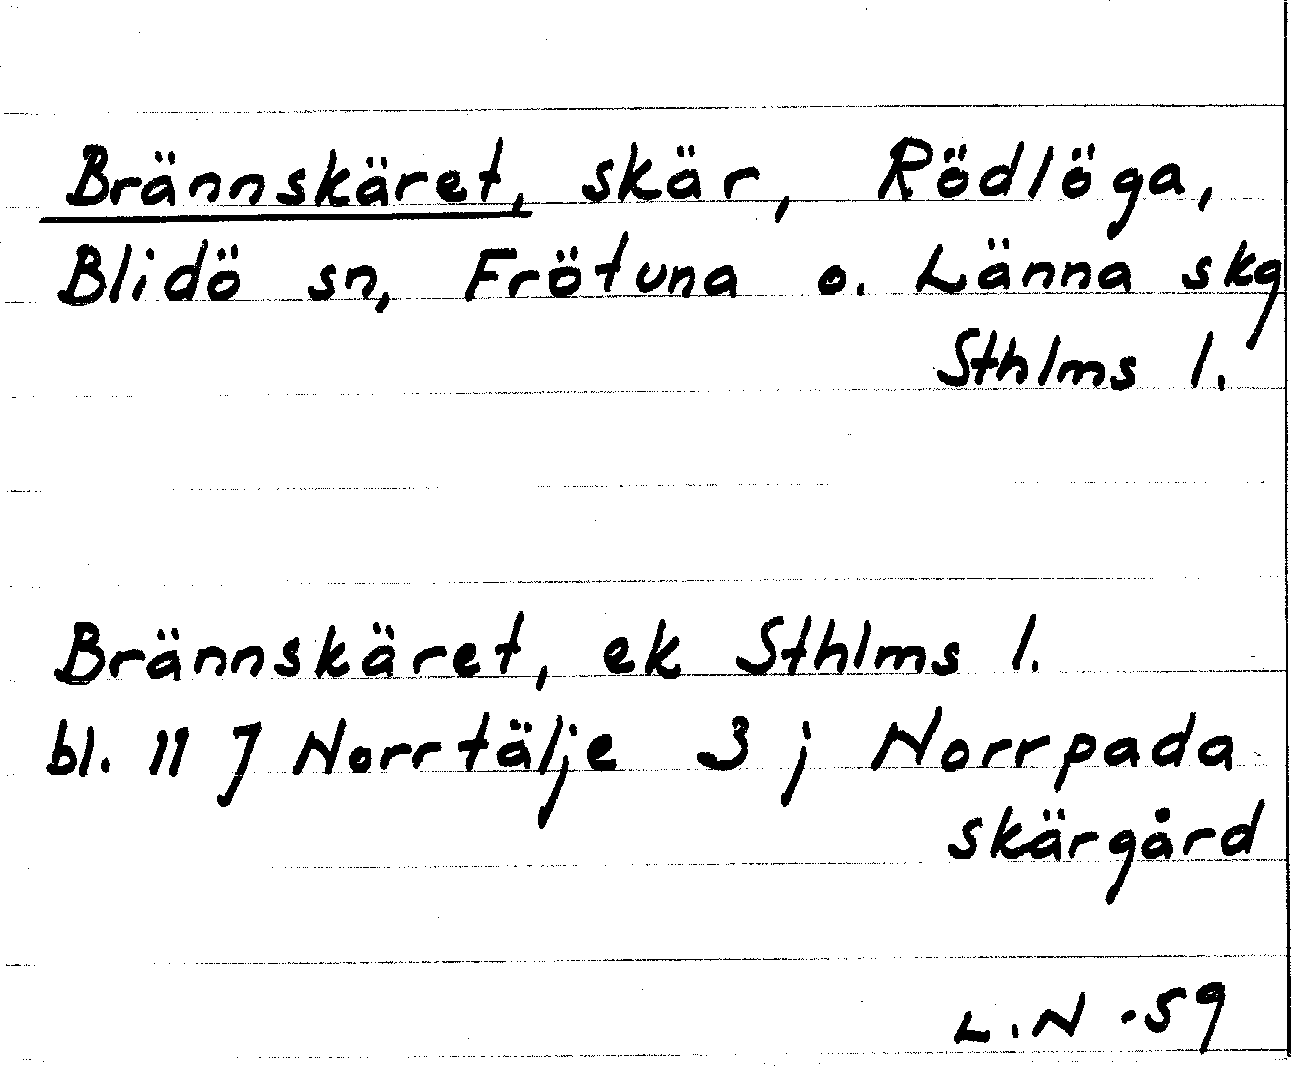 Brännskäret, skär, Rödlöga,
Blidö sn, Frötuna o. Länna skg
Sthlms l.
Brännskäret, ek Sthlms l.
bl. 11 J Norrtälje 3 j Norrpada
skärgård
L.N -59